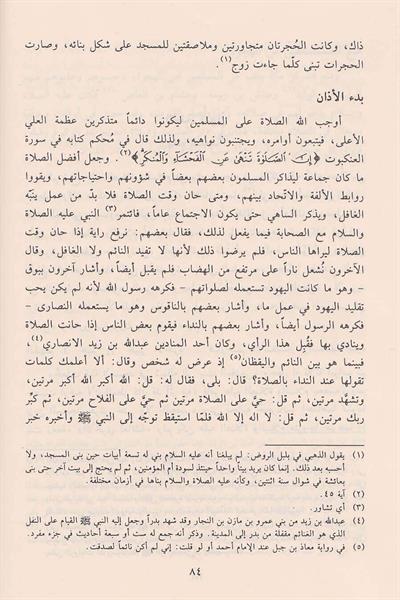 ذاك، وكانت الحُجرتان متجاورتين وملاصقتين للمسجد على شكل بنائه، وصارت
الحجرات تبنى كلّما جاءت زوج(١).
بدء الأذان
أوجب الله الصلاة على المسلمين ليكونوا دائماً متذكرين عظمة العلي
الأعلى، فيتبعون أوامره، ويجتنبون نواهيه، ولذلك قال في مُحكم كتابه في سورة
العنكبوت ﴿إِنَّ ٱلصَّلَوٰةَ تَنْهَىٰ عَنِ ٱلْفَحْشَآءِ وَٱلْمُنكَرِ﴾(٢). وجعل أفضل الصلاة
ما كان جماعة ليذاكر المسلمون بعضهم بعضاً في شؤونهم واحتياجاتهم، ويقووا
روابط الألفة والاتّحاد بينهم، ومتى حان وقت الصلاة فلا بدّ من عمل ينبّه
الغافل، ويذكر الساهي حتى يكون الاجتماع عاماً، فائتمر(٣) النبي عليه الصلاة
والسلام مع الصحابة فيما يفعل لذلك، فقال بعضهم: نرفع راية إذا حان وقت
الصلاة ليراها الناس، فلم يرضوا ذلك لأنها لا تفيد النائم ولا الغافل، وقال
الآخرون نُشعل ناراً على مرتفع من الهضاب فلم يقبل أيضاً، وأشار آخرون ببوق
– وهو ما كانت اليهود تستعمله لصلواتهم – فكرهه رسول الله لأنه لم يكن يحب
تقليد اليهود في عمل ما، وأشار بعضهم بالناقوس وهو ما يستعمله النصارى،
فكرهه الرسول أيضاً، وأشار بعضهم بالنداء فيقوم بعض الناس إذا حانت الصلاة
وينادي بها فقُبِل هذا الرأي، وكان أحد المنادين عبدالله بن زيد الانصاري(٤)،
فبينما هو بين النائم واليقظان(٥) إذ عرض له شخص وقال: ألا أعلمك كلمات
تقولها عند النداء بالصلاة؟ قال: بلى، فقال له: قل: الله أكبر الله أكبر مرتين،
وتشهَّد مرتين، ثم قل: حيَّ على الصلاة مرتين ثم حيَّ على الفلاح مرتين، ثم كبِّر
ربك مرتين، ثم قل: لا اله إلا الله فلمّا استيقظ توجّه إلى النبي ﷺ وأخبره خبر
(١) يقول الذهبي في بلبل الروض: لم يبلغنا أنه عليه السلام بني له تسعة أبيات حين بنى المسجد، ولا
أحسبه بعد ذلك. إنما كان يريد بيتاً واحداً حينئذ لسودة أم المؤمنين، ثم لم يحتج إلى بيت آخر حتى بنى
بعائشة في شوال سنة اثنتين، وكأنه عليه الصلاة والسلام بناها في أزمان مختلفة.
(٢) آية ٤٥.
(٣) أي تشاور.
(٤) عبدالله بن زيد من بني عمرو بن مازن بن النجار وقد شهد بدراً وجعل إليه النبي ﷺ القيام على النفل
الذي هو الغنائم مقفلة من بدر إلى المدينة. وذكر أنه جمع له ست أو سبعة أحاديث في جزء مفرد.
(٥) في رواية معاذ بن جبل عند الإمام أحمد أو قلت: إني لم أكن نائماً لصدقت.
٨٤